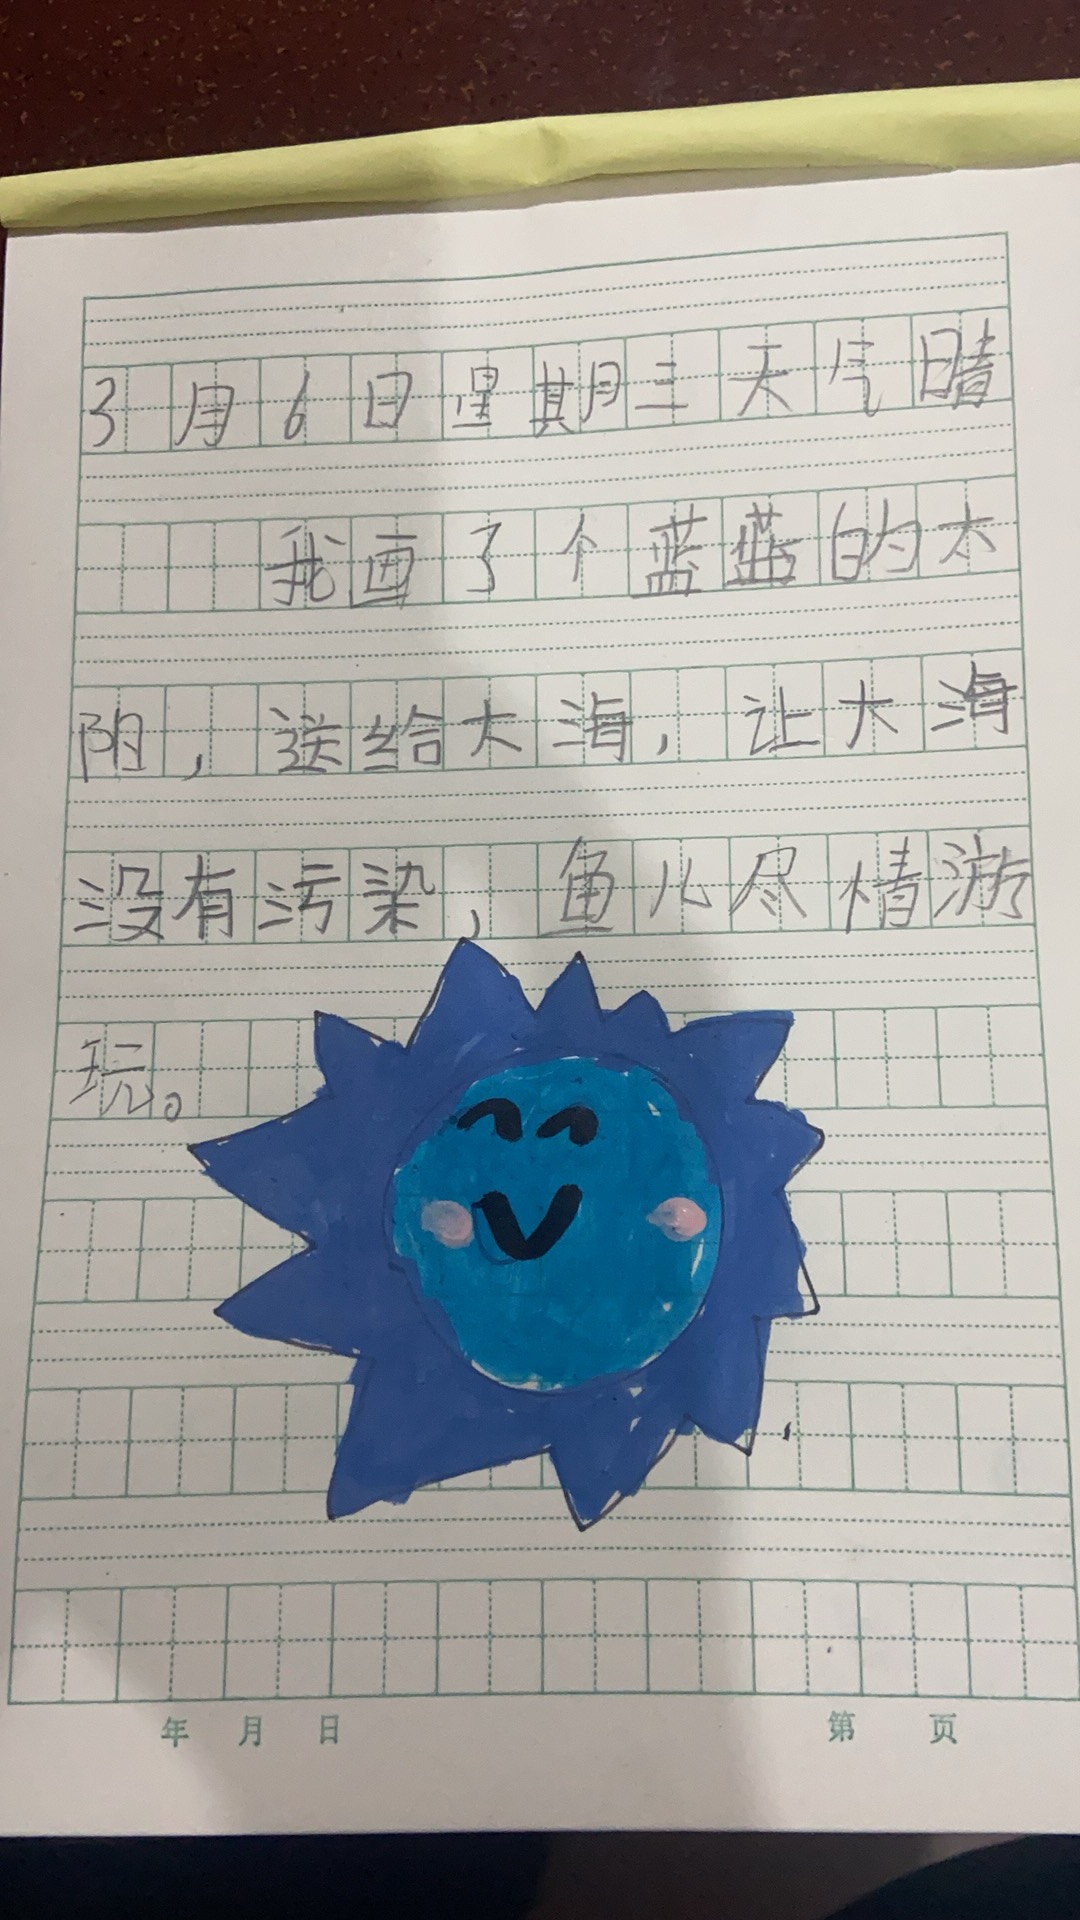 3月6日星期三天气晴
我画了个蓝蓝的太
阳，送给大海，让大海
没有污染，鱼儿尽情游
玩。
年 月 日 第 页